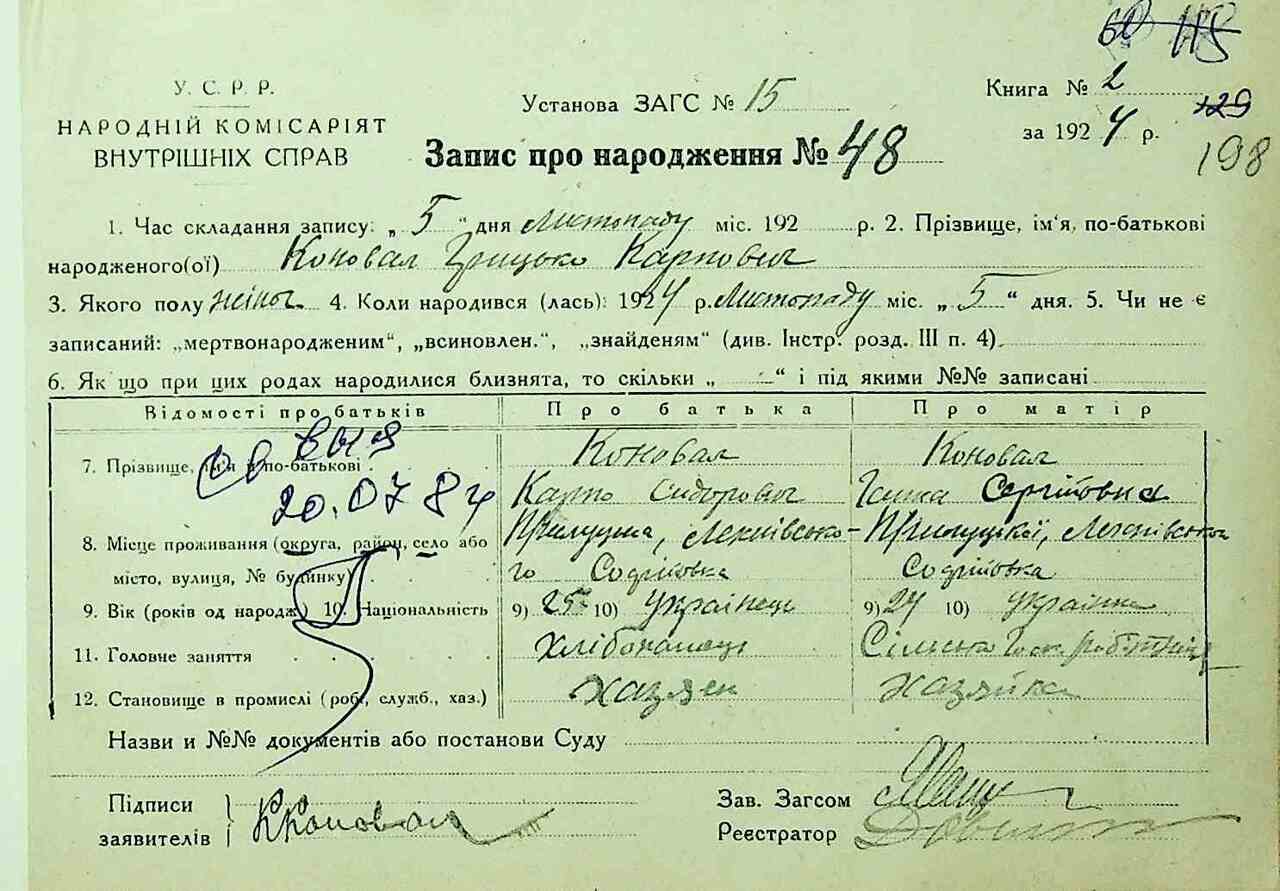 60 115
У. С. Р. Р.
НАРОДНІЙ КОМІСАРІЯТ
ВНУТРІШНІХ СПРАВ
Установа ЗАГС № 15
Книга № 2
129
за 1924 р.
198
Запис про народження № 48
1. Час складання запису: „ 5 “ дня Листопаду міс. 192 р. 2. Прізвище, ім'я, по-батькові
народженого(ої) Коновал Грицько Карпович
3. Якого полу 4. Коли народився (лась): 1924 р. Листопаду міс. „ 5 “ дня. 5. Чи не є
записаний: „мертвонародженим“, „всиновлен.“, „знайденям“ (див. Інстр. розд. III п. 4)
6. Як що при цих родах народилися близнята, то скільки „ “ і під якими №№ записані
Відомості про батьків Про батька Про матір
7. Прізвище, ім'я и по-батькові Коновал Коновал
20.07.84 Карпо Сидорович Ганна Сергіївна
8. Місце проживання (округа, район, село або
місто, вулиця, № будинку)
го Софіївка Софіївка
9. Вік (років од народж.) 10. Національність 9) 25 10) Українець 9) 24 10) Українка
11. Головне заняття Хлібопашець
12. Становище в промислі (роб., служб., хаз.) Хазяен Хазяйка
Назви и №№ документів або постанови Суду
Підписи
заявителів ККоновал
Зав. Загсом
Реєстратор